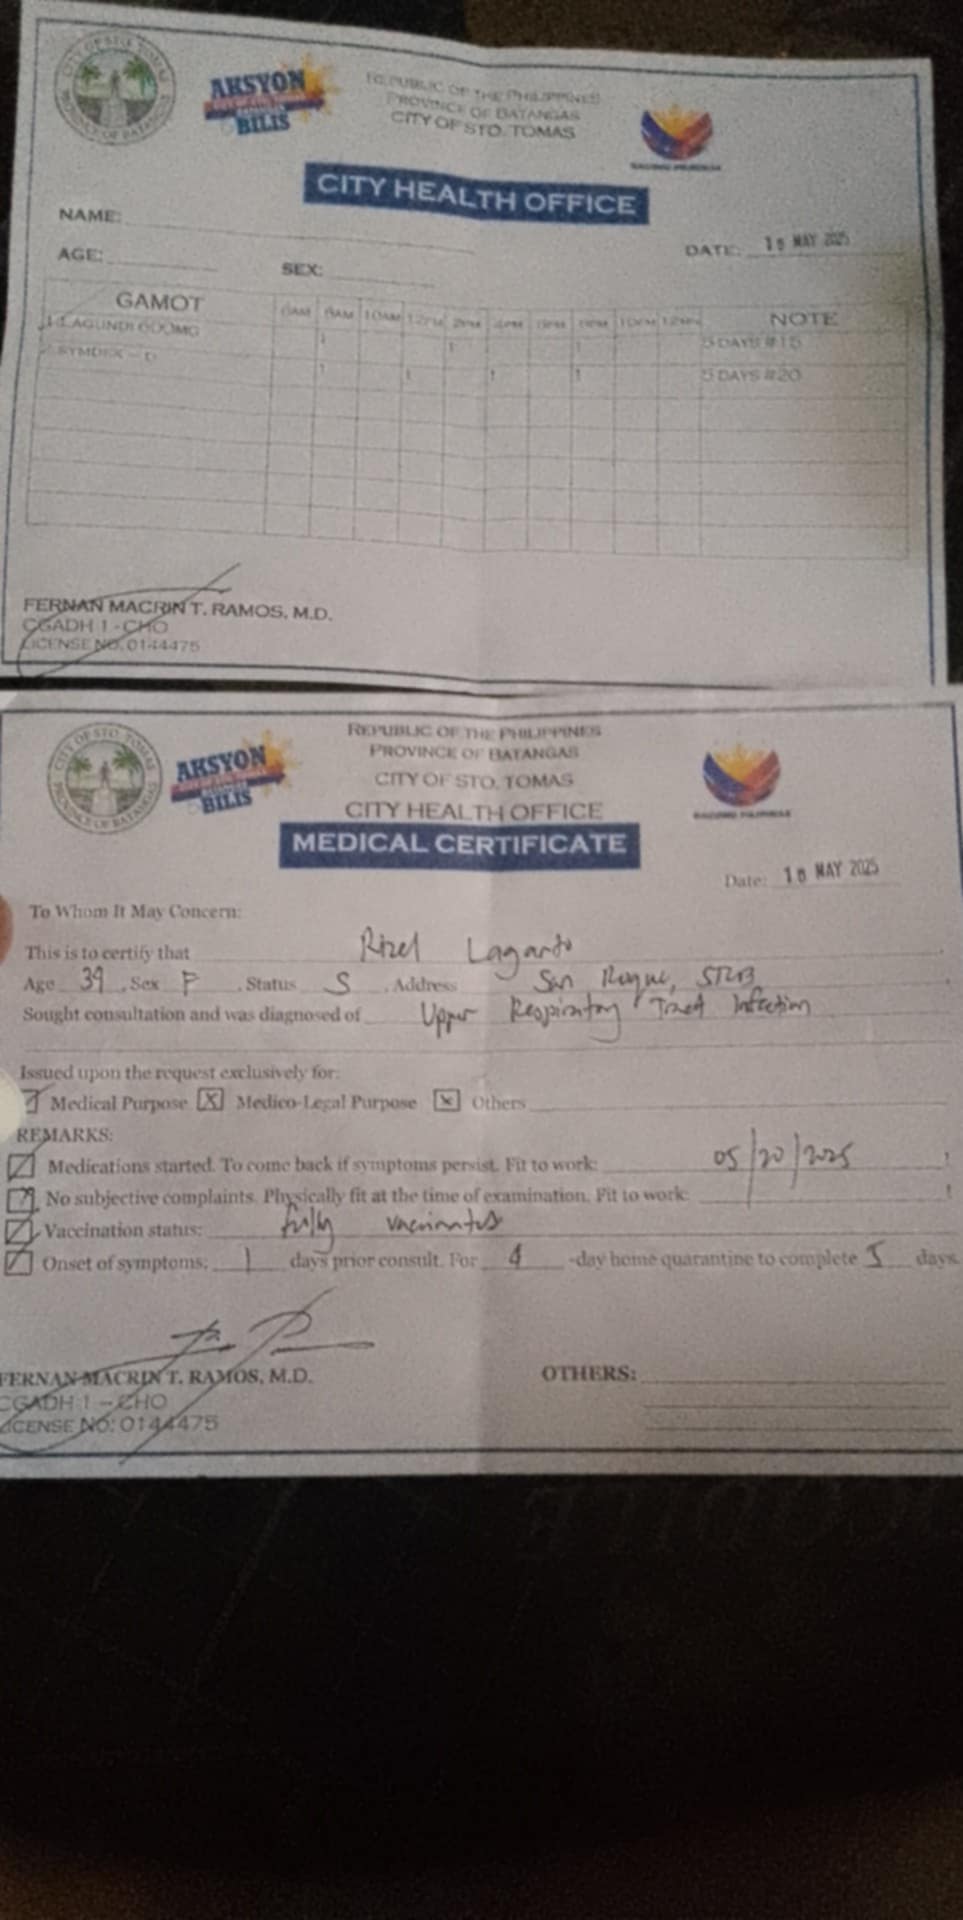 CITY OF STO. TOMAS
PROVINCE OF BATANGAS
AKSYON
BILIS
REPUBLIC OF THE PHILIPPINES
PROVINCE OF BATANGAS
CITY OF STO. TOMAS
BAGONG PILIPINAS
CITY HEALTH OFFICE
NAME:
DATE: MAY 2025
AGE: SEX:
GAMOT 6AM 8AM 10AM 12PM 2PM 4PM 6PM 8PM 10PM 12MN NOTE
1 LAGUNDI 600MG 1 1 1 5 DAYS #15
1 1 1 1 5 DAYS #20
FERNAN MACRIN T. RAMOS, M.D.
CGADH 1 - CHO
LICENSE NO. 0144475
CITY OF STO. TOMAS
PROVINCE OF BATANGAS
AKSYON
BILIS
REPUBLIC OF THE PHILIPPINES
PROVINCE OF BATANGAS
CITY OF STO. TOMAS
CITY HEALTH OFFICE
BAGONG PILIPINAS
MEDICAL CERTIFICATE
Date: MAY 2025
To Whom It May Concern:
This is to certify that Rizel Lagarto
Age 39 , Sex F , Status S , Address San Roque, STCB
Sought consultation and was diagnosed of Upper Respiratory Tract Infection
Issued upon the request exclusively for:
Medical Purpose X Medico-Legal Purpose X Others
REMARKS:
Medications started. To come back if symptoms persist. Fit to work: 05/20/2025
No subjective complaints. Physically fit at the time of examination. Fit to work:
Vaccination status: fully vaccinated
Onset of symptoms: 1 days prior consult. For 4 -day home quarantine to complete 5 days.
FERNAN MACRIN T. RAMOS, M.D.
OTHERS:
CGADH 1 - CHO
LICENSE NO: 0144475